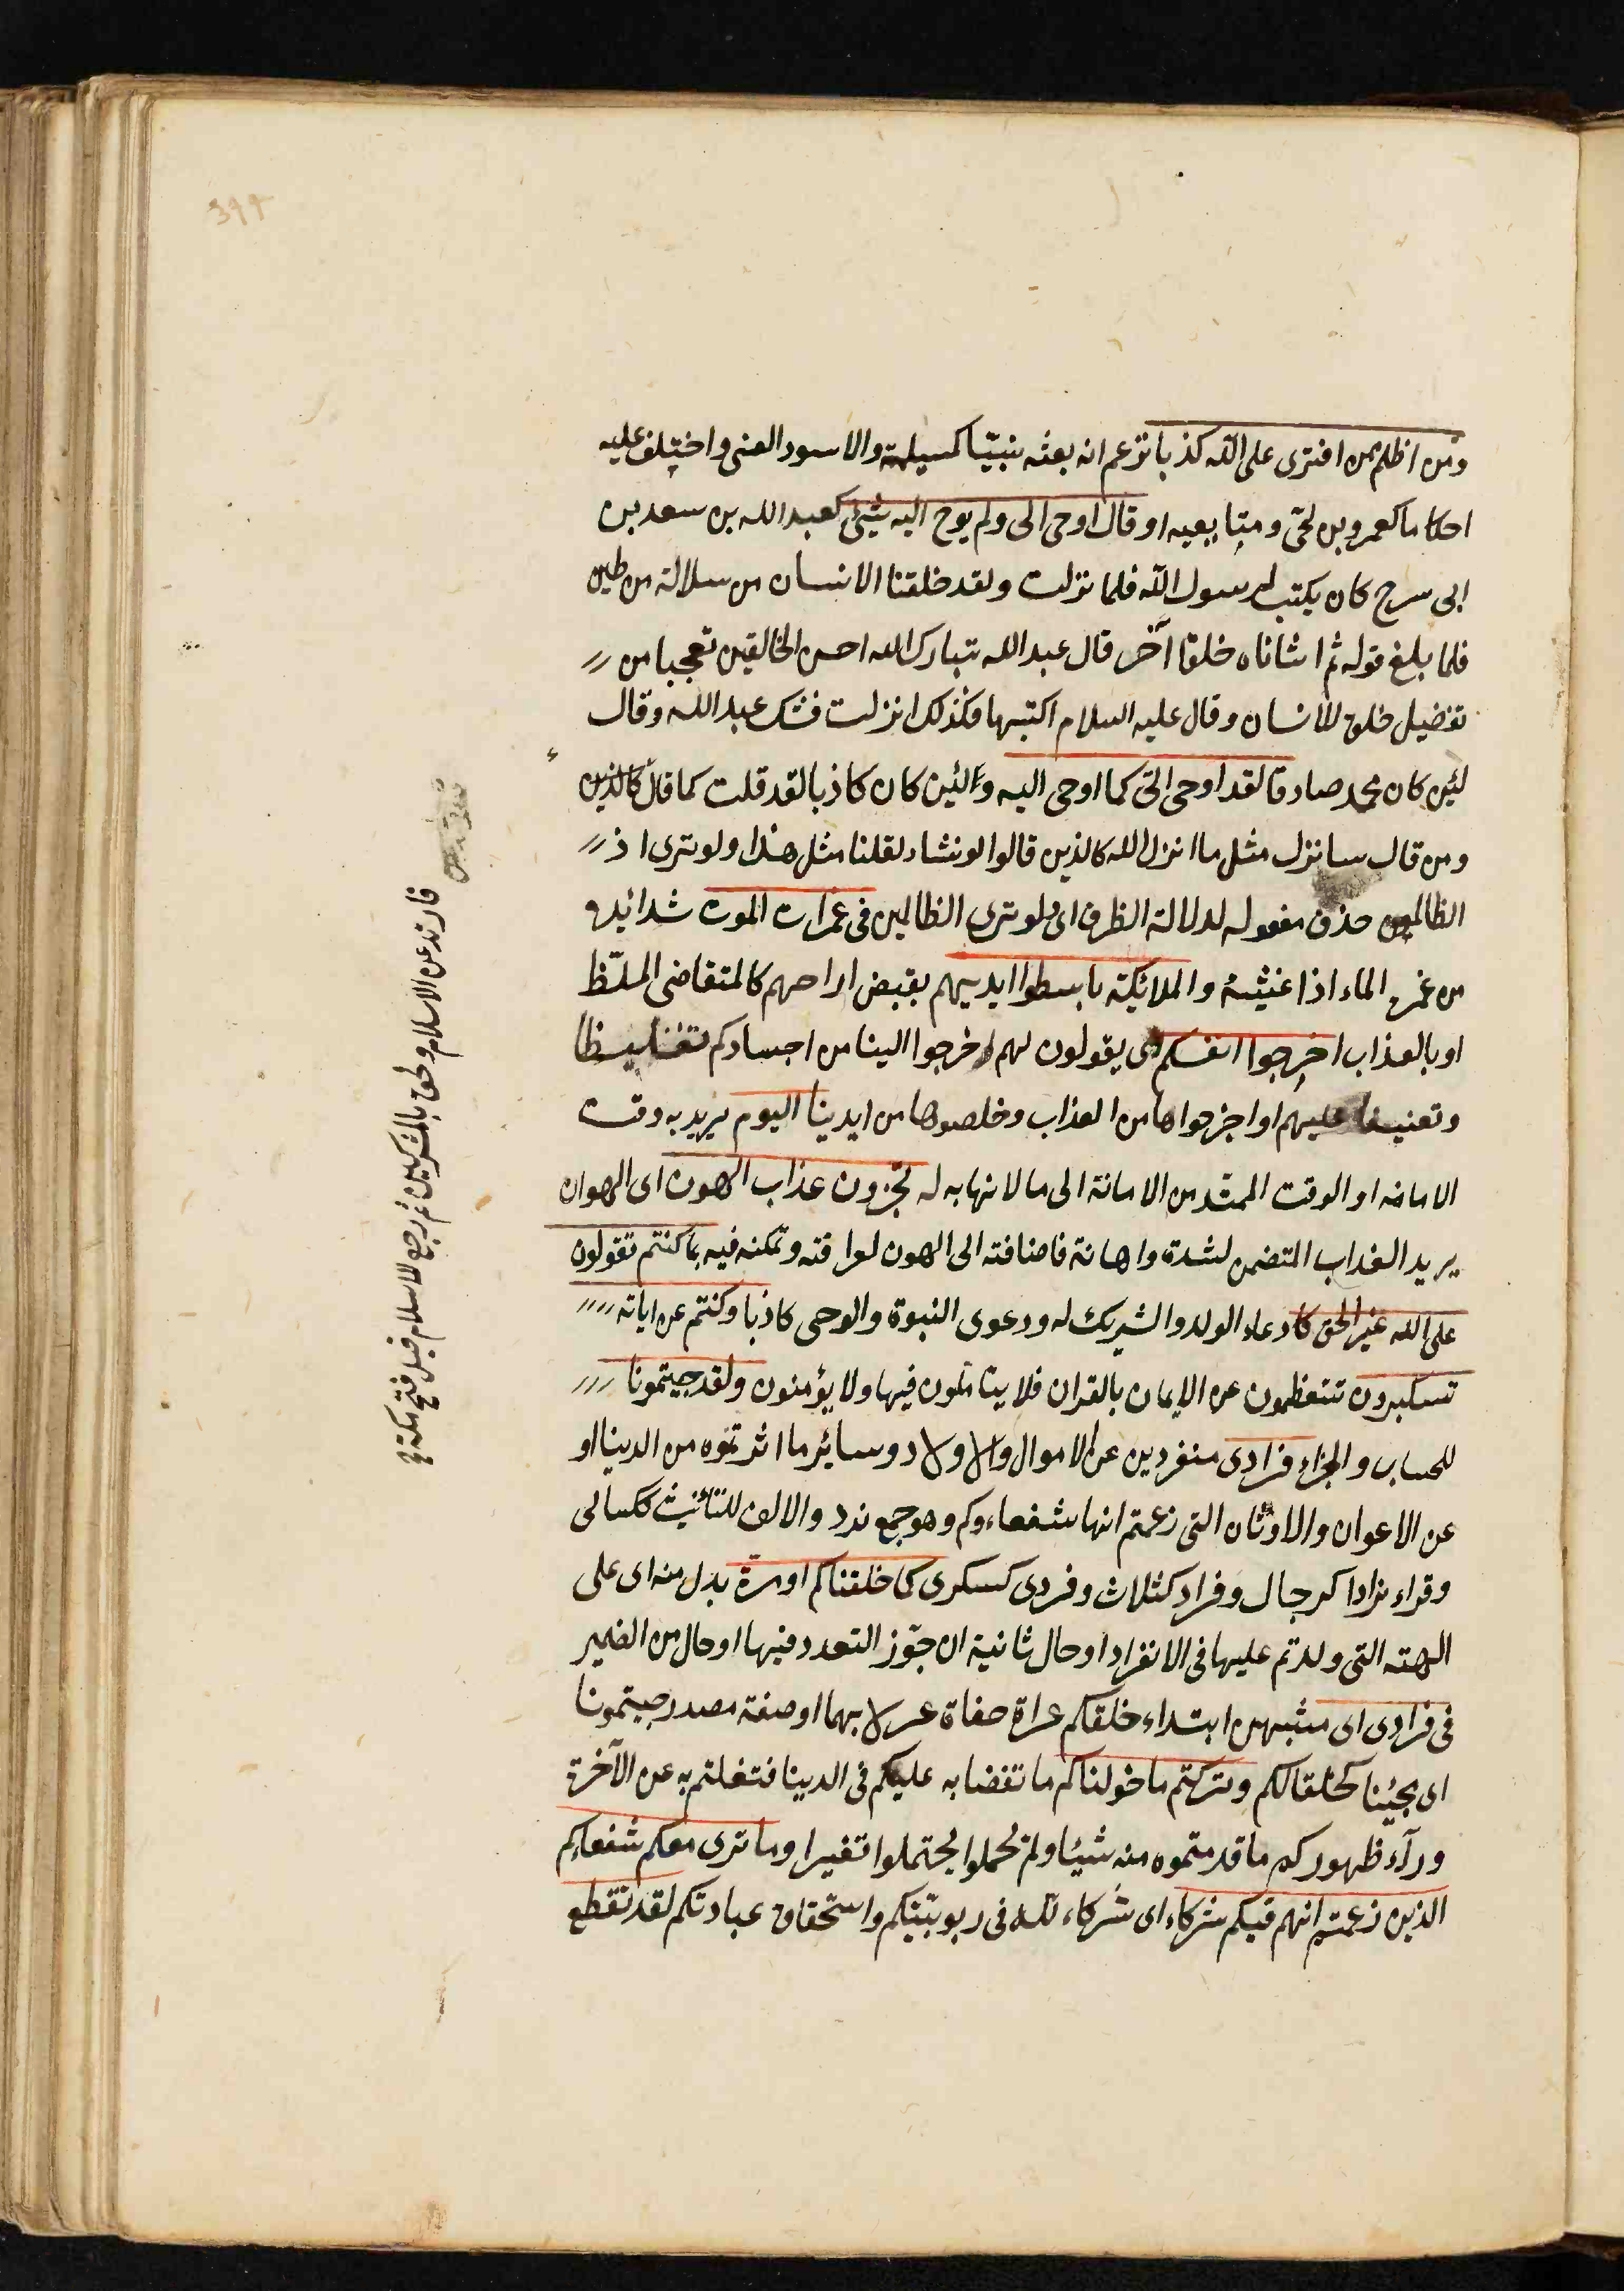 ومن اظلم ممن افترى على الله كذبا تزعم انه بعثه نبيّا كمسيلمة والاسود العنى واختلف عليه
احكاما كعمرو بن لحىّ ومتابعيه او قال اوحى الى ولم يوح اليه شئ كعبد الله بن سعد بن
ابى سرح كان يكتب لرسول الله فلما نزلت ولقد خلقنا الانسان من سلالة من طين
فلما بلغ قوله ثم انشاناه خلقا آخر قال عبد الله تبارك الله احسن الخالقين تعجبا من
تفضيل خلق الانسان وقال عليه السلام اكتبها فكذلك نزلت فشك عبد الله وقال
لئين كان محمد صادقا لقد اوحى الىّ كما اوحى اليه ولئين كان كاذبا لقد قلت كما قال كالذين
ومن قال سانزل مثل ما انزل الله كالذين قالوا لو نشاء لقلنا مثل هذا ولو ترى اذ
الظالمون حذف مفعوله لدلالة الظرف اى ولو ترى الظالمين فى غمرات الموت شدائده
من غمره الماء اذا غشيه والملائكة باسطوا ايديهم بقبض ارواحهم كالمتقاضى الملظ
او بالعذاب اخرجوا انفسكم اى يقولون لهم اخرجوا الينا من اجسادكم تغليظا
وتعنيفا عليهم او اخرجوها من العذاب وخلصوها من ايدينا اليوم يريد به وقت
الاماته او الوقت الممتد من الاماتة الى ما لا نهايه له تجزون عذاب الهون اى الهوان
يريد العذاب المتضمن لشدة واهانة فاضافته الى الهون لعراقته وتمكنه فيه بما كنتم تقولون
على الله غير الحق كادعاء الولد والشريك له ودعوى النبوة والوحى كاذبا وكنتم عن اياته
تسكبرون تتعظمون عن الايمان بالقران فلا يتاملون فيها ولا يؤمنون ولقد جيتمونا
للحساب والجزاء فرادى منفردين عن الاموال والاولاد وسائر ما اثرتموه من الدنيا او
عن الاعوان والاوثان التى زعمتم انها شفعاءوكم وهو جمع ندد والالف للتانيث ككسالى
وقراء نرادا كرجال وفراد كثلاث وفردى كسكرى كما خلقناكم اومرة بدل منه اى على
الهته التى ولدتم عليها فى الانفراد او حال ثانية ان جوّز التعدد فيها او حال من الضمير
فى فرادى اى مشبهين ابتداء خلقكم عراة حفاة عرلا بهما او صفة مصدر جيتمونا
اى مجيئنا كخلقا لكم وتركتم ما خولناكم ما تفضنا به عليكم فى الدينا فتغلتم به عن الآخرة
ورآء ظهوركم ما قدمتموه منه شيئا ولم تحملوا يحتملوا تقيرا وما نرى معكم شفعاءكم
الذين زعمتم انهم فيكم شركاء اى شركاء لله فى ربوبيتكم واستحقاق عبادتكم لقد تقطع
فارتد عن الاسلام ولحق بالمشركين ثم رجع للاسلام قبل فتح مكة